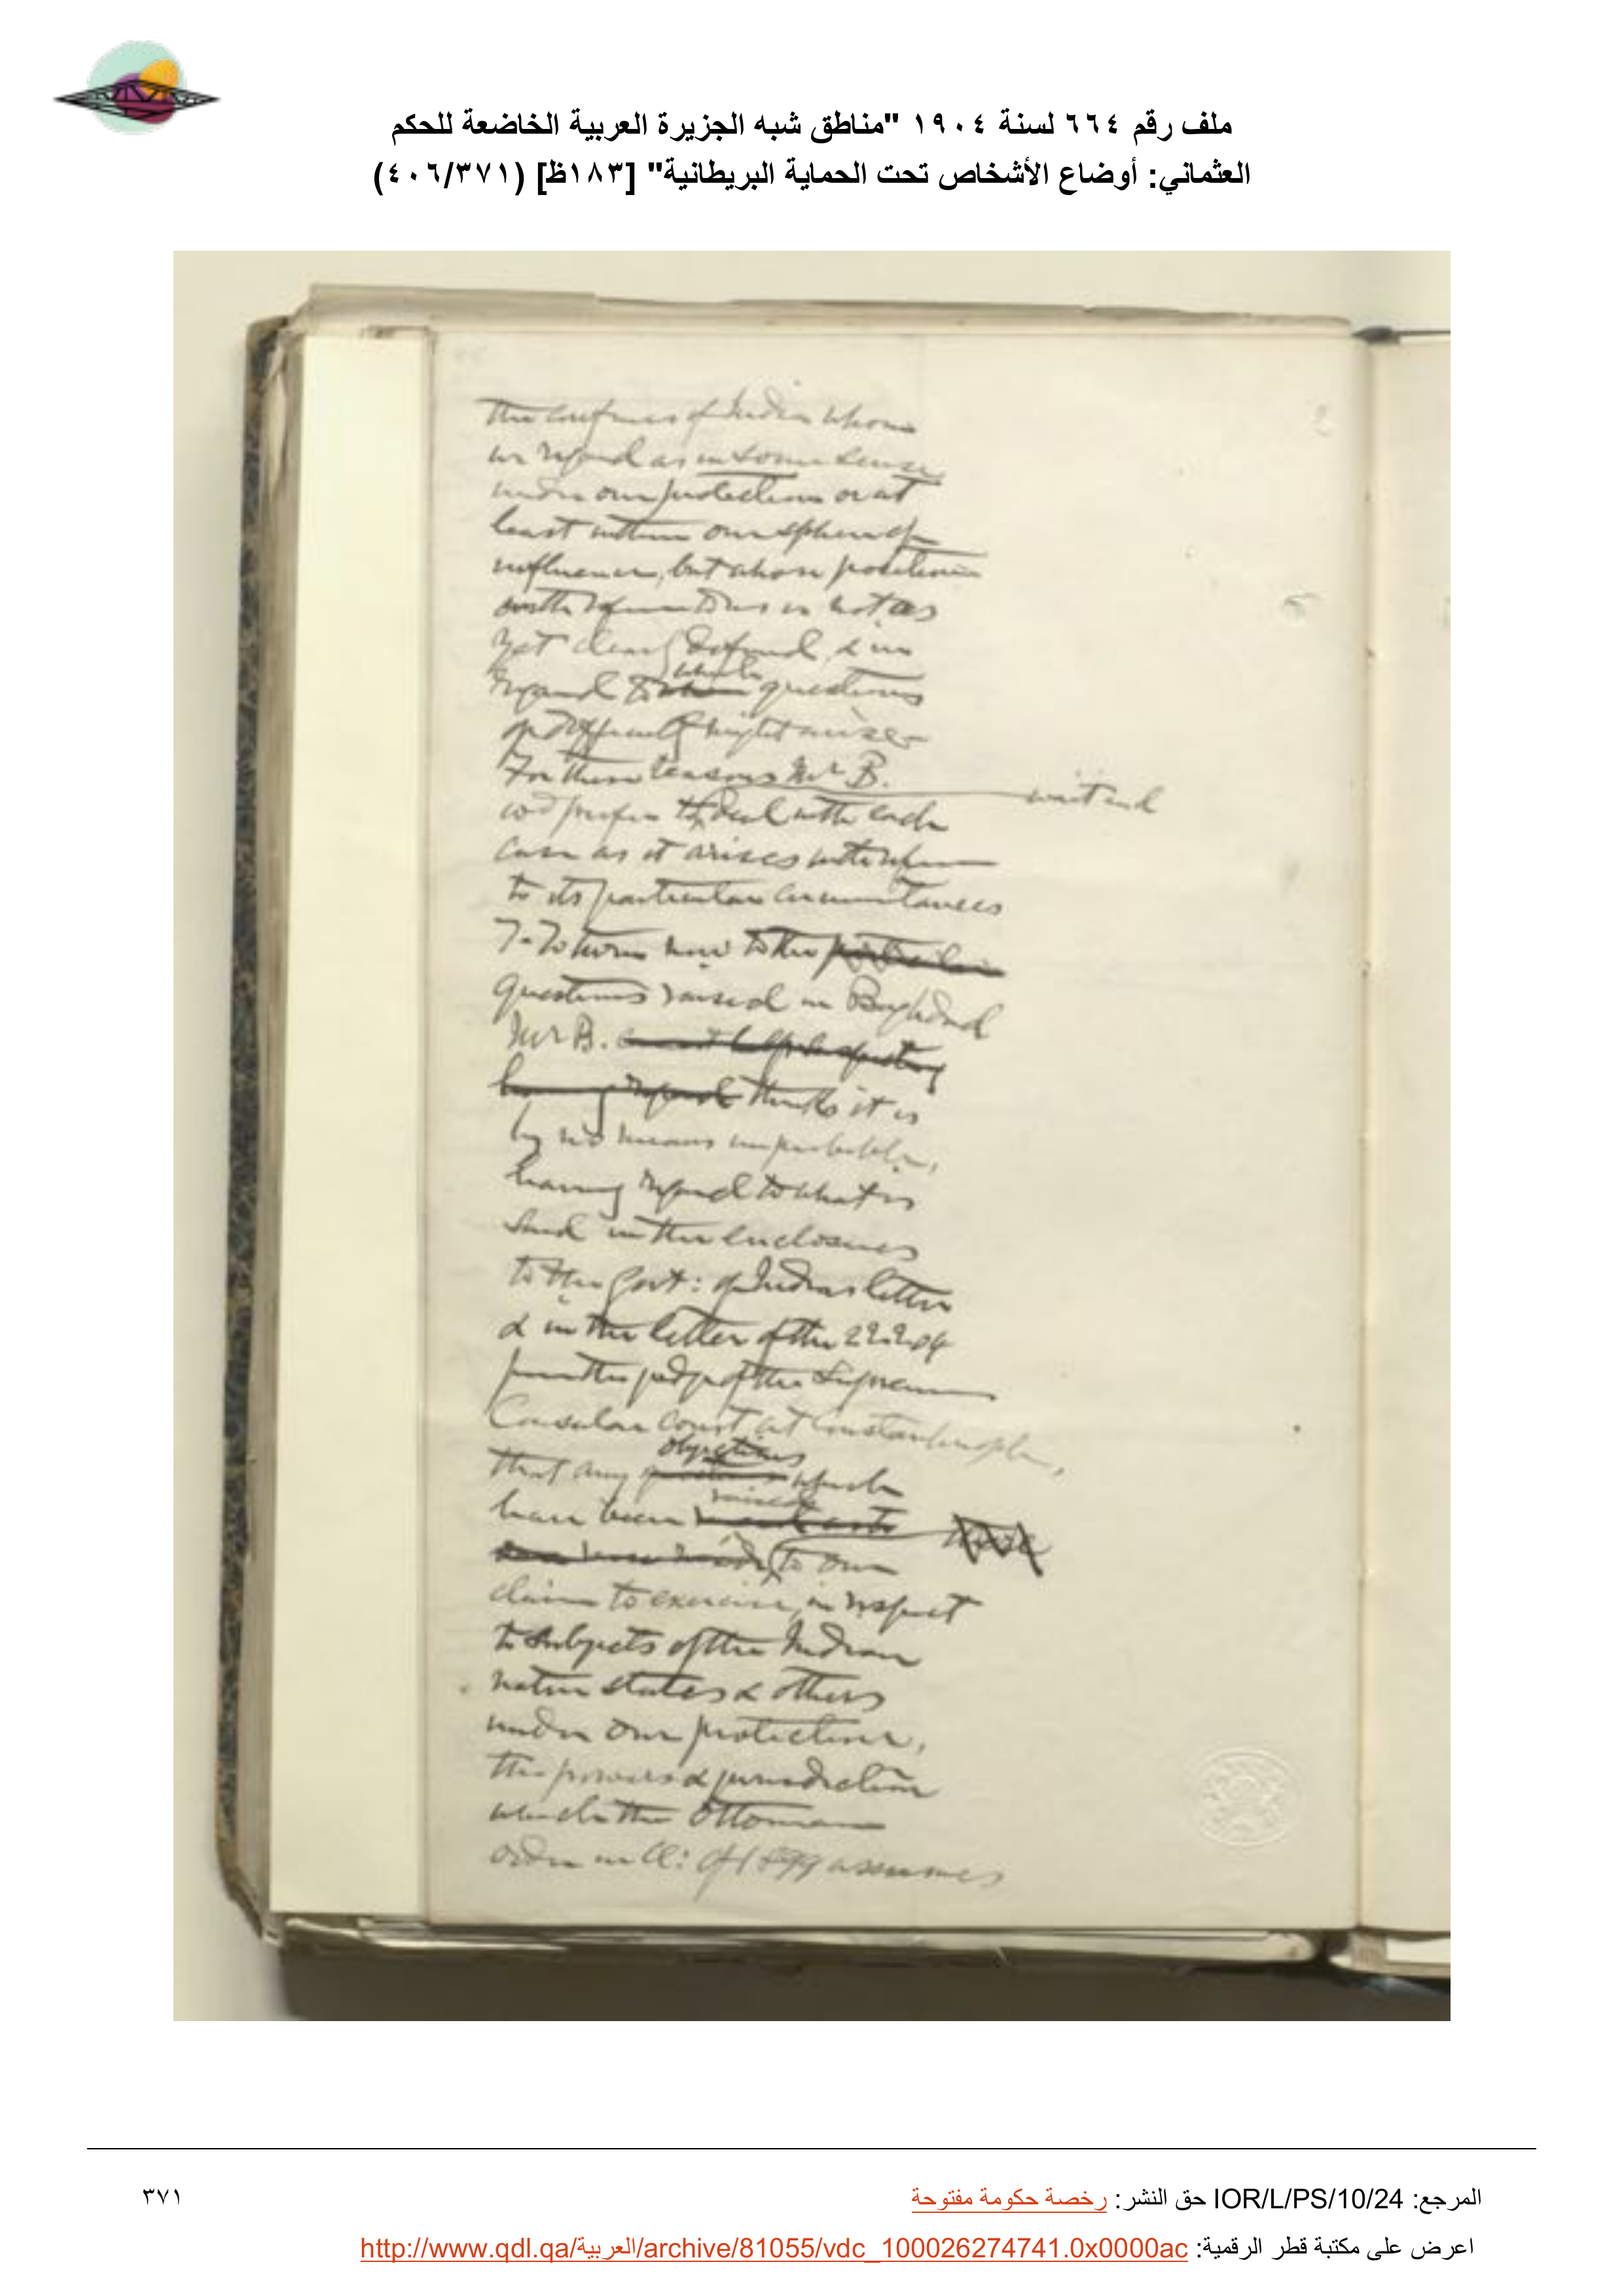 ملف رقم ٦٦٤ لسنة ١٩٠٤ "مناطق شبه الجزيرة العربية الخاضعة للحكم
العثماني: أوضاع الأشخاص تحت الحماية البريطانية" [١٨٣ظ] (٤٠٦/٣٧١)
the confines of India whom
we regard as in some sense
under our protection or at
least within our sphere of
influence, but whose position
with to us is not as
yet clearly defined, & in
regard to which questions
of difficulty might arise.
For these reasons Mr B.
wd prefer to wait and
deal with each
case as it arises with
to its particular circumstances
7. To turn now to the particular
questions raised in Baghdad
Mr B.
having regard thinks it is
by no means improbable,
having regard to what is
said in the enclosures
to the Govt: of India's letter
& in the letter of the
from the judge of the Supreme
Consular Court at Constantinople,
that any objections which
have been raised
to our
claim to exercise, in respect
to subjects of the Indian
native states & others
under our protection,
the powers & jurisdiction
which the Ottoman
Order in Cl: of 1899 assumes
المرجع: IOR/L/PS/10/24 حق النشر: رخصة حكومة مفتوحة
٣٧١
اعرض على مكتبة قطر الرقمية: http://www.qdl.qa/العربية/archive/81055/vdc_100026274741.0x0000ac